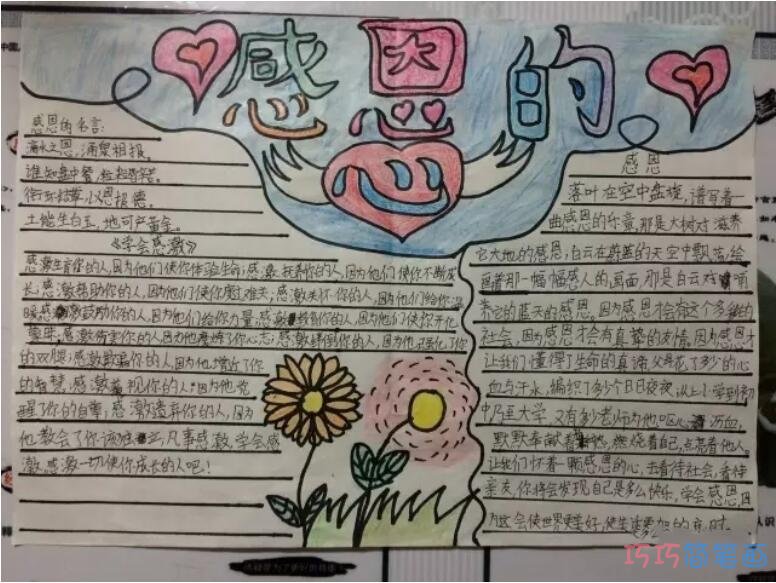 感恩的心
感恩的名言:
滴水之恩,涌泉相报。
谁知盘中餐,粒粒皆辛苦。
衔环结草,以恩报德。
土能生白玉,地可产黄金。
《学会感激》
感激生育你的人,因为他们使你体验生命;感激抚养你的人,因为他们使你不断成
长;感激帮助你的人,因为他们使你度过难关;感激关怀你的人,因为他们给你温
暖;感激鼓励你的人,因为他们给你力量;感激教育你的人,因为他们使你开化
蒙昧;感激伤害你的人,因为他磨练了你心志;感激绊倒你的人,因为他强化了你
的双腿;感激欺骗你的人,因为他增进了你
的智慧;感激藐视你的人;因为他觉
醒了你的自尊;感激遗弃你的人,因为
他教会了你该独立;凡事感激,学会感
激,感激一切使你成长的人吧!
感恩
落叶在空中盘旋,谱写着一
曲感恩的乐章,那是大树对滋养
它大地的感恩;白云在蔚蓝的天空中飘荡,绘
画着那一幅幅感人的画面,那是白云对哺
养它的蓝天的感恩。因为感恩才会有这个多彩的
社会,因为感恩才会有真挚的友情,因为感恩才
让我们懂得了生命的真谛。父母花了多少的心
血与汗水,编织了多少个日日夜夜,从上小学到初
中乃至大学,又有多少老师为他呕心沥血,
默默奉献着,燃烧着自己,点亮着他人。
让我们怀着一颗感恩的心,去看待社会,看待
亲友,你将会发现自己是多么快乐,学会感恩,因
为这会使世界更美好,使生活更加的充实。
巧巧简笔画